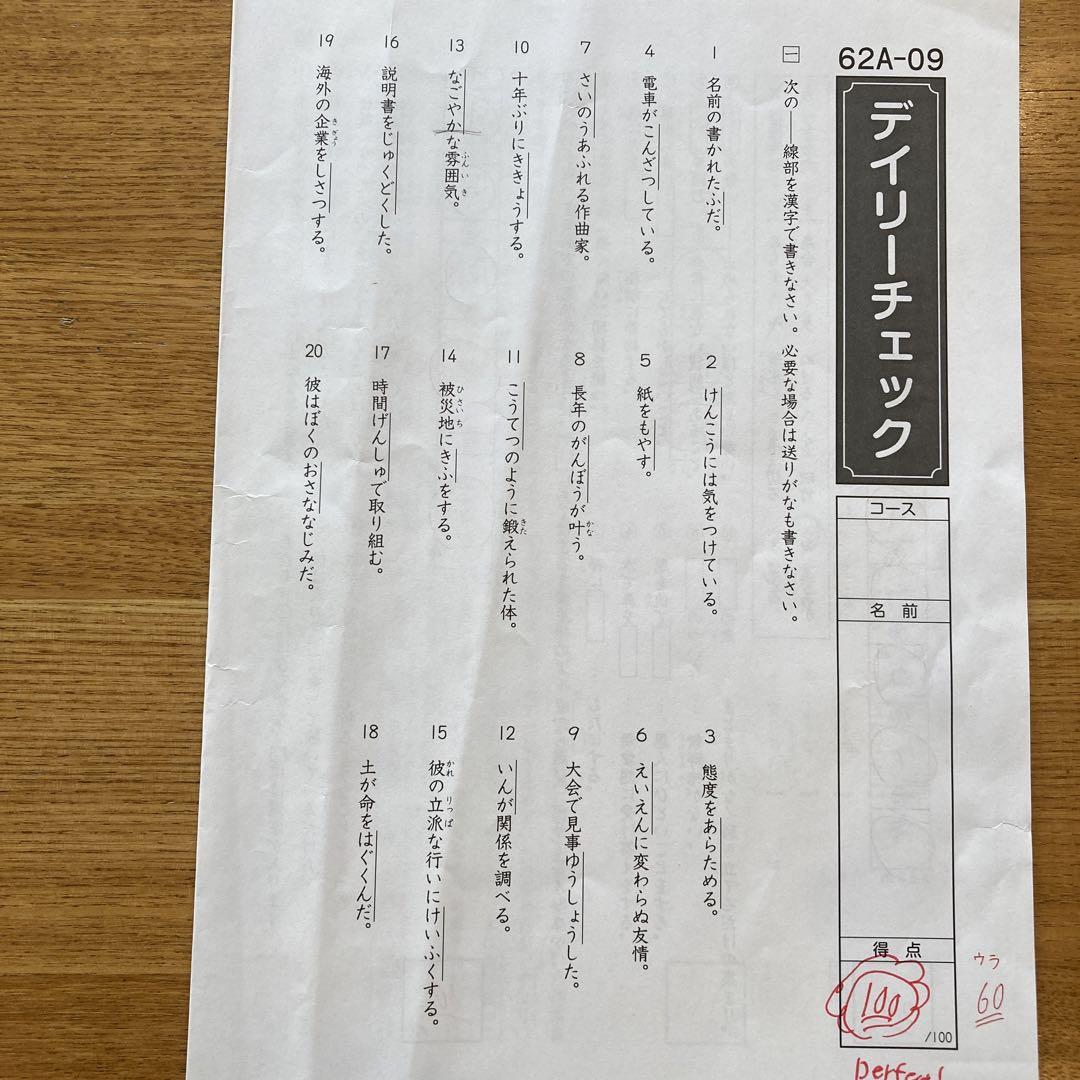 62A-09
デイリーチェック
コース
名前
得点
100
/100
ウラ
60
Perfect!
一 次の――線部を漢字で書きなさい。必要な場合は送りがなも書きなさい。
1 名前の書かれたふだ。
2 けんこうには気をつけている。
3 態度をあらためる。
4 電車がこんざつしている。
5 紙をもやす。
6 えいえんに変わらぬ友情。
7 さいのうあふれる作曲家。
8 長年のがんぼうが叶う。
かな
9 大会で見事ゆうしょうした。
10 十年ぶりにききょうする。
11 こうてつのように鍛えられた体。
きた
12 いんが関係を調べる。
13 なごやかな雰囲気。
ふんいき
14 被災地にきふをする。
ひさいち
15 彼の立派な行いにけいふくする。
かれ りっぱ
16 説明書をじゅくどくした。
17 時間げんしゅで取り組む。
18 土が命をはぐくんだ。
19 海外の企業をしさつする。
きぎょう
20 彼はぼくのおさななじみだ。